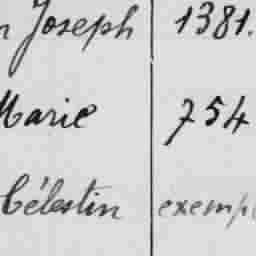 Joseph 1381.
Marie 754
Célestin